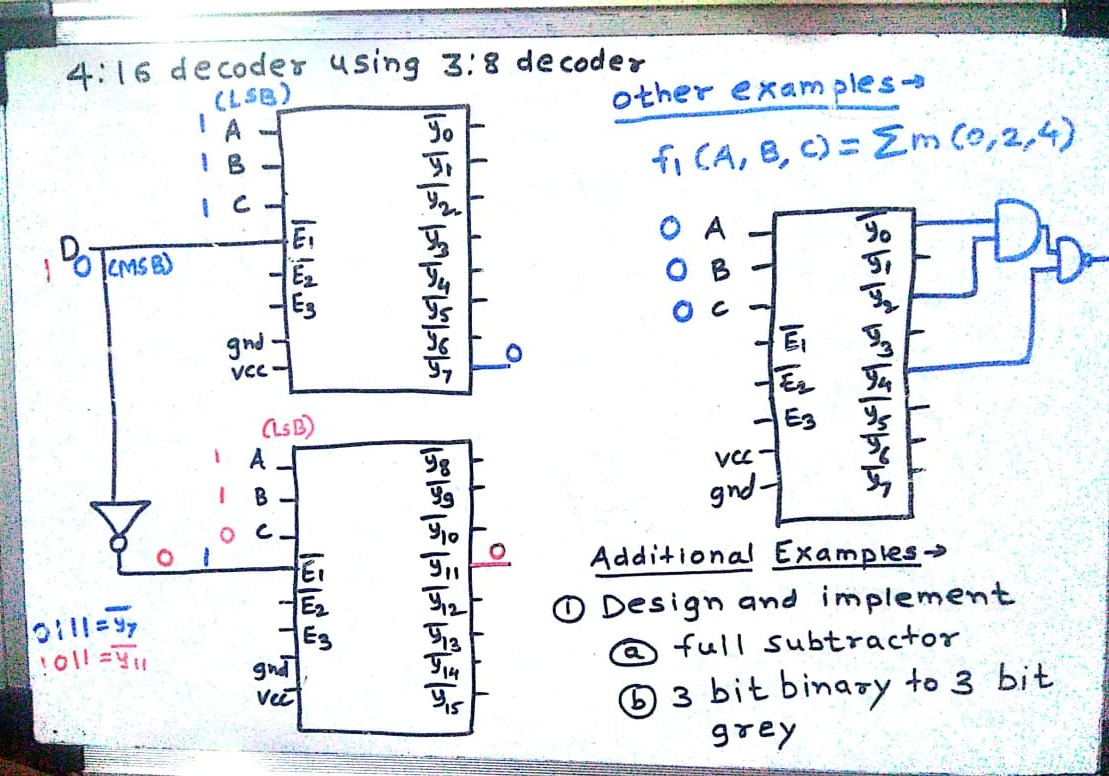 4:16 decoder using 3:8 decoder
(LSB)
1 A
1 B
1 C
1 D 0 (MSB)
E̅1
E̅2
E3
gnd
vcc
y̅0
y̅1
y̅2
y̅3
y̅4
y̅5
y̅6
y̅7 0
(LSB)
1 A
1 B
0 C
0 1
E̅1
E̅2
E3
gnd
vcc
y̅8
y̅9
y̅10
y̅11 0
y̅12
y̅13
y̅14
y̅15
0111 = y̅7
1011 = y̅11
other examples→
f1 (A, B, C) = Σm (0,2,4)
0 A
0 B
0 C
E̅1
E̅2
E3
vcc
gnd
y̅0
y̅1
y̅2
y̅3
y̅4
y̅5
y̅6
y̅7
Additional Examples→
① Design and implement
ⓐ full subtractor
ⓑ 3 bit binary to 3 bit
grey